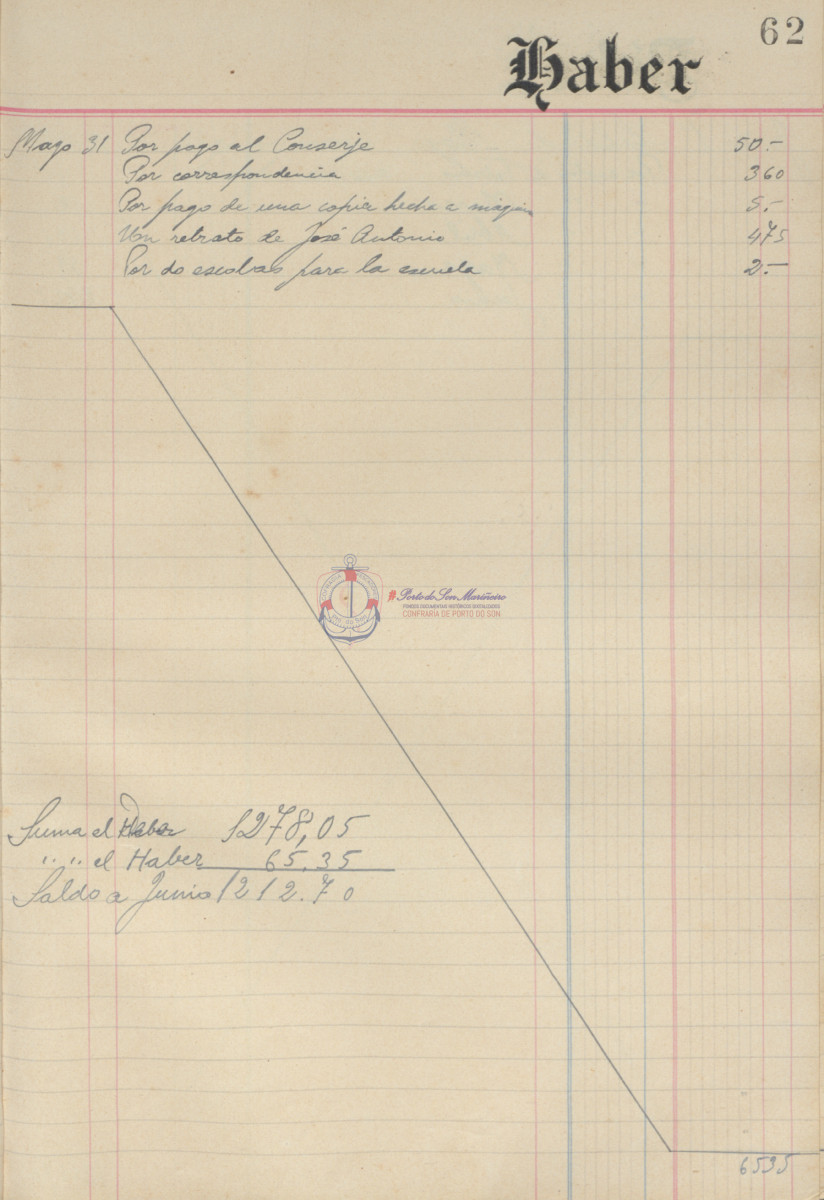 62
Haber
Mayo 31 Por pago al Conserje 50.-
Por correspondencia 360
Por pago de una copia hecha a máquina 5.-
Un retrato de José Antonio 475
Por do escobas para la escuela 2.-
Porto do Son Mariñeiro
FONDOS DOCUMENTAIS HISTÓRICOS DIXITALIZADOS
CONFRARÍA DE PORTO DO SON
Suma el Debe 1278,05
" " el Haber 65,35
Saldo a Junio 1212.70
6535